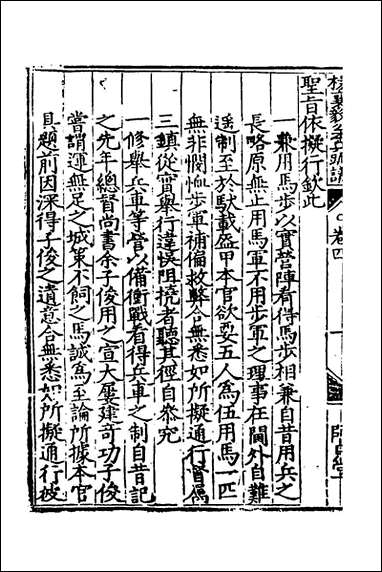 聖旨依擬行欽此
一兼用馬步以實營陣看得馬步相兼自昔用兵之
長略原無止用馬軍不用步軍之理事在閫外自難
遥制至於馱載盔甲本官欲要五人為伍用馬一匹
無非憫恤步軍補偏救弊合無悉如所擬通行督屬
三鎮從實舉行違悞阻撓者聽其徑自叅究
一修舉兵車等營以備衝戰看得兵車之制自昔記
之先年總督尚書余子俊用之宣大屢建竒功子俊
嘗謂運無足之城策不飼之馬誠為至論所據本官
具題前因深得子俊之遺意合無悉如所擬通行彼